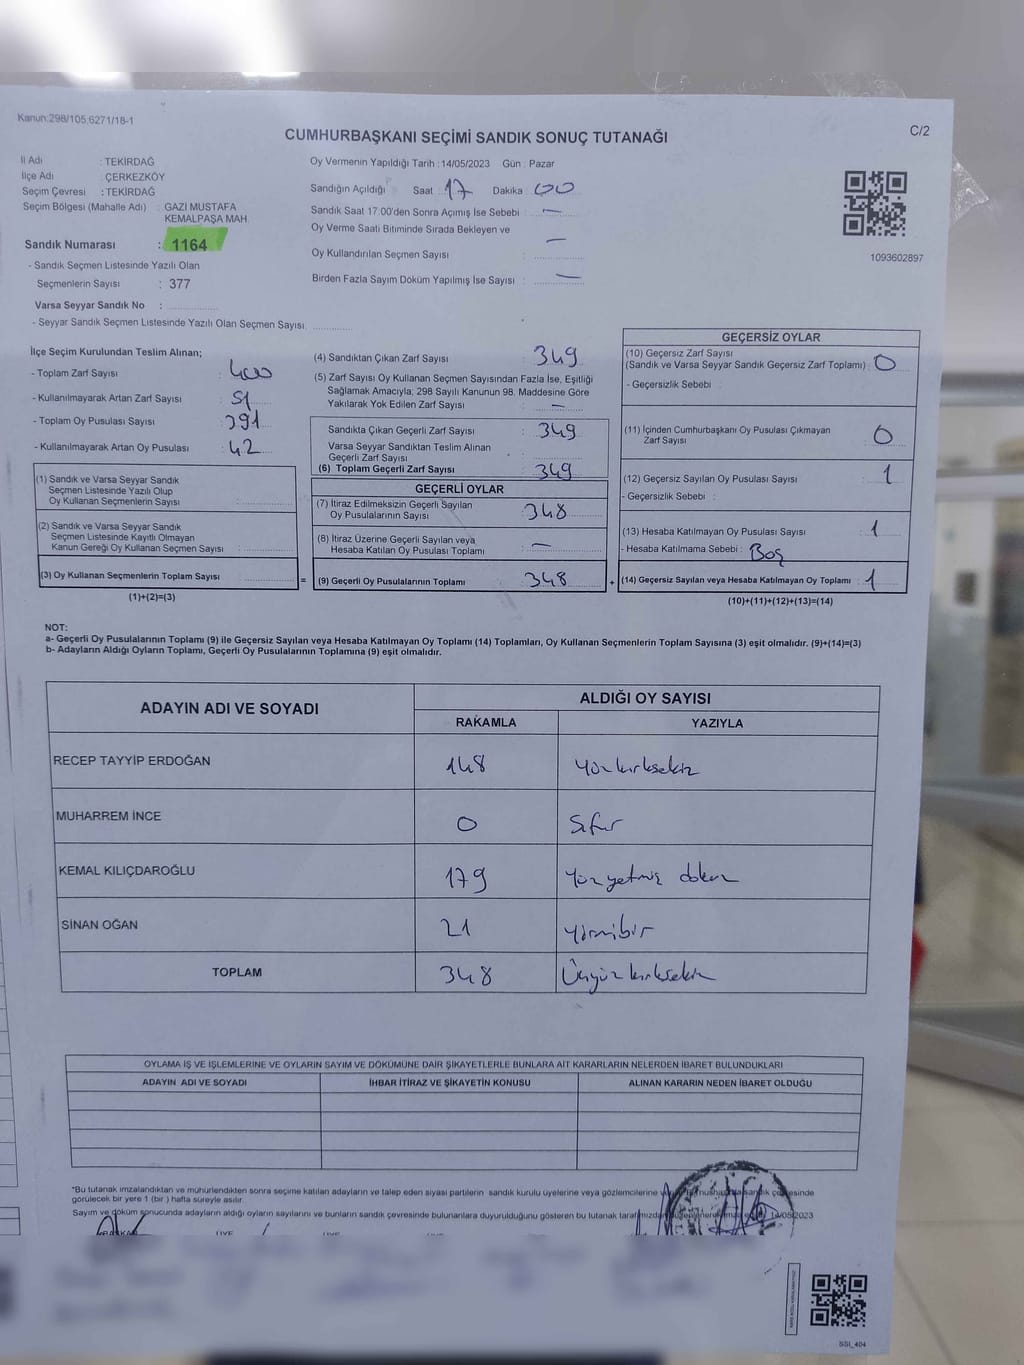 Kanun:298/105;6271/18-1
C/2
CUMHURBAŞKANI SEÇİMİ SANDIK SONUÇ TUTANAĞI
İl Adı : TEKİRDAĞ
İlçe Adı : ÇERKEZKÖY
Seçim Çevresi : TEKİRDAĞ
Seçim Bölgesi (Mahalle Adı) : GAZI MUSTAFA
KEMALPAŞA MAH.
Sandık Numarası : 1164
- Sandık Seçmen Listesinde Yazılı Olan
Seçmenlerin Sayısı : 377
Varsa Seyyar Sandık No :
- Seyyar Sandık Seçmen Listesinde Yazılı Olan Seçmen Sayısı
Oy Vermenin Yapıldığı Tarih : 14/05/2023 Gün : Pazar
Sandığın Açıldığı Saat : 17 Dakika : 00
Sandık Saat 17:00'den Sonra Açımış İse Sebebi : —
Oy Verme Saati Bitiminde Sırada Bekleyen ve
Oy Kullandırılan Seçmen Sayısı : —
Birden Fazla Sayım Döküm Yapılmış İse Sayısı : —
1093602897
İlçe Seçim Kurulundan Teslim Alınan;
- Toplam Zarf Sayısı : 400
- Kullanılmayarak Artan Zarf Sayısı : 51
- Toplam Oy Pusulası Sayısı : 391
- Kullanılmayarak Artan Oy Pusulası : 42
(1) Sandık ve Varsa Seyyar Sandık
Seçmen Listesinde Yazılı Olup
Oy Kullanan Seçmenlerin Sayısı :
(2) Sandık ve Varsa Seyyar Sandık
Seçmen Listesinde Kayıtlı Olmayan
Kanun Gereği Oy Kullanan Seçmen Sayısı :
(3) Oy Kullanan Seçmenlerin Toplam Sayısı : =
(1)+(2)=(3)
(4) Sandıktan Çıkan Zarf Sayısı : 349
(5) Zarf Sayısı Oy Kullanan Seçmen Sayısından Fazla İse, Eşitliği
Sağlamak Amacıyla; 298 Sayılı Kanunun 98. Maddesine Göre
Yakılarak Yok Edilen Zarf Sayısı : —
Sandıkta Çıkan Geçerli Zarf Sayısı : 349
Varsa Seyyar Sandıktan Teslim Alınan
Geçerli Zarf Sayısı :
(6) Toplam Geçerli Zarf Sayısı : 349
GEÇERLİ OYLAR
(7) İtiraz Edilmeksizin Geçerli Sayılan
Oy Pusulalarının Sayısı : 348
(8) İtiraz Üzerine Geçerli Sayılan veya
Hesaba Katılan Oy Pusulası Toplamı : —
(9) Geçerli Oy Pusulalarının Toplamı : 348 +
GEÇERSİZ OYLAR
(10) Geçersiz Zarf Sayısı
(Sandık ve Varsa Seyyar Sandık Geçersiz Zarf Toplamı) : 0
- Geçersizlik Sebebi :
(11) İçinden Cumhurbaşkanı Oy Pusulası Çıkmayan
Zarf Sayısı : 0
(12) Geçersiz Sayılan Oy Pusulası Sayısı : 1
- Geçersizlik Sebebi :
(13) Hesaba Katılmayan Oy Pusulası Sayısı : 1
- Hesaba Katılmama Sebebi : Boş
(14) Geçersiz Sayılan veya Hesaba Katılmayan Oy Toplamı : 1
(10)+(11)+(12)+(13)=(14)
NOT:
a- Geçerli Oy Pusulalarının Toplamı (9) ile Geçersiz Sayılan veya Hesaba Katılmayan Oy Toplamı (14) Toplamları, Oy Kullanan Seçmenlerin Toplam Sayısına (3) eşit olmalıdır. (9)+(14)=(3)
b- Adayların Aldığı Oyların Toplamı, Geçerli Oy Pusulalarının Toplamına (9) eşit olmalıdır.
ADAYIN ADI VE SOYADI
ALDIĞI OY SAYISI
RAKAMLA YAZIYLA
RECEP TAYYİP ERDOĞAN 148 Yüzkırksekiz
MUHARREM İNCE 0 Sıfır
KEMAL KILIÇDAROĞLU 179 Yüzyetmiş dokuz
SİNAN OĞAN 21 Yirmibir
TOPLAM 348 Üçyüzkırksekiz
OYLAMA İŞ VE İŞLEMLERİNE VE OYLARIN SAYIM VE DÖKÜMÜNE DAİR ŞİKAYETLERLE BUNLARA AİT KARARLARIN NELERDEN İBARET BULUNDUKLARI
ADAYIN ADI VE SOYADI İHBAR İTİRAZ VE ŞİKAYETİN KONUSU ALINAN KARARIN NEDEN İBARET OLDUĞU
*Bu tutanak imzalandıktan ve mühürlendikten sonra seçime katılan adayların ve talep eden siyasi partilerin sandık kurulu üyelerine veya gözlemcilerine sandık çevresinde
görülecek bir yere 1 (bir) hafta süreyle asılır.
Sayım ve döküm sonucunda adayların aldığı oyların sayılarını ve bunların sandık çevresinde bulunanlara duyurulduğunu gösteren bu tutanak tarafımızdan 14/05/2023
BAŞKAN ÜYE ÜYE ÜYE
SSİ_404